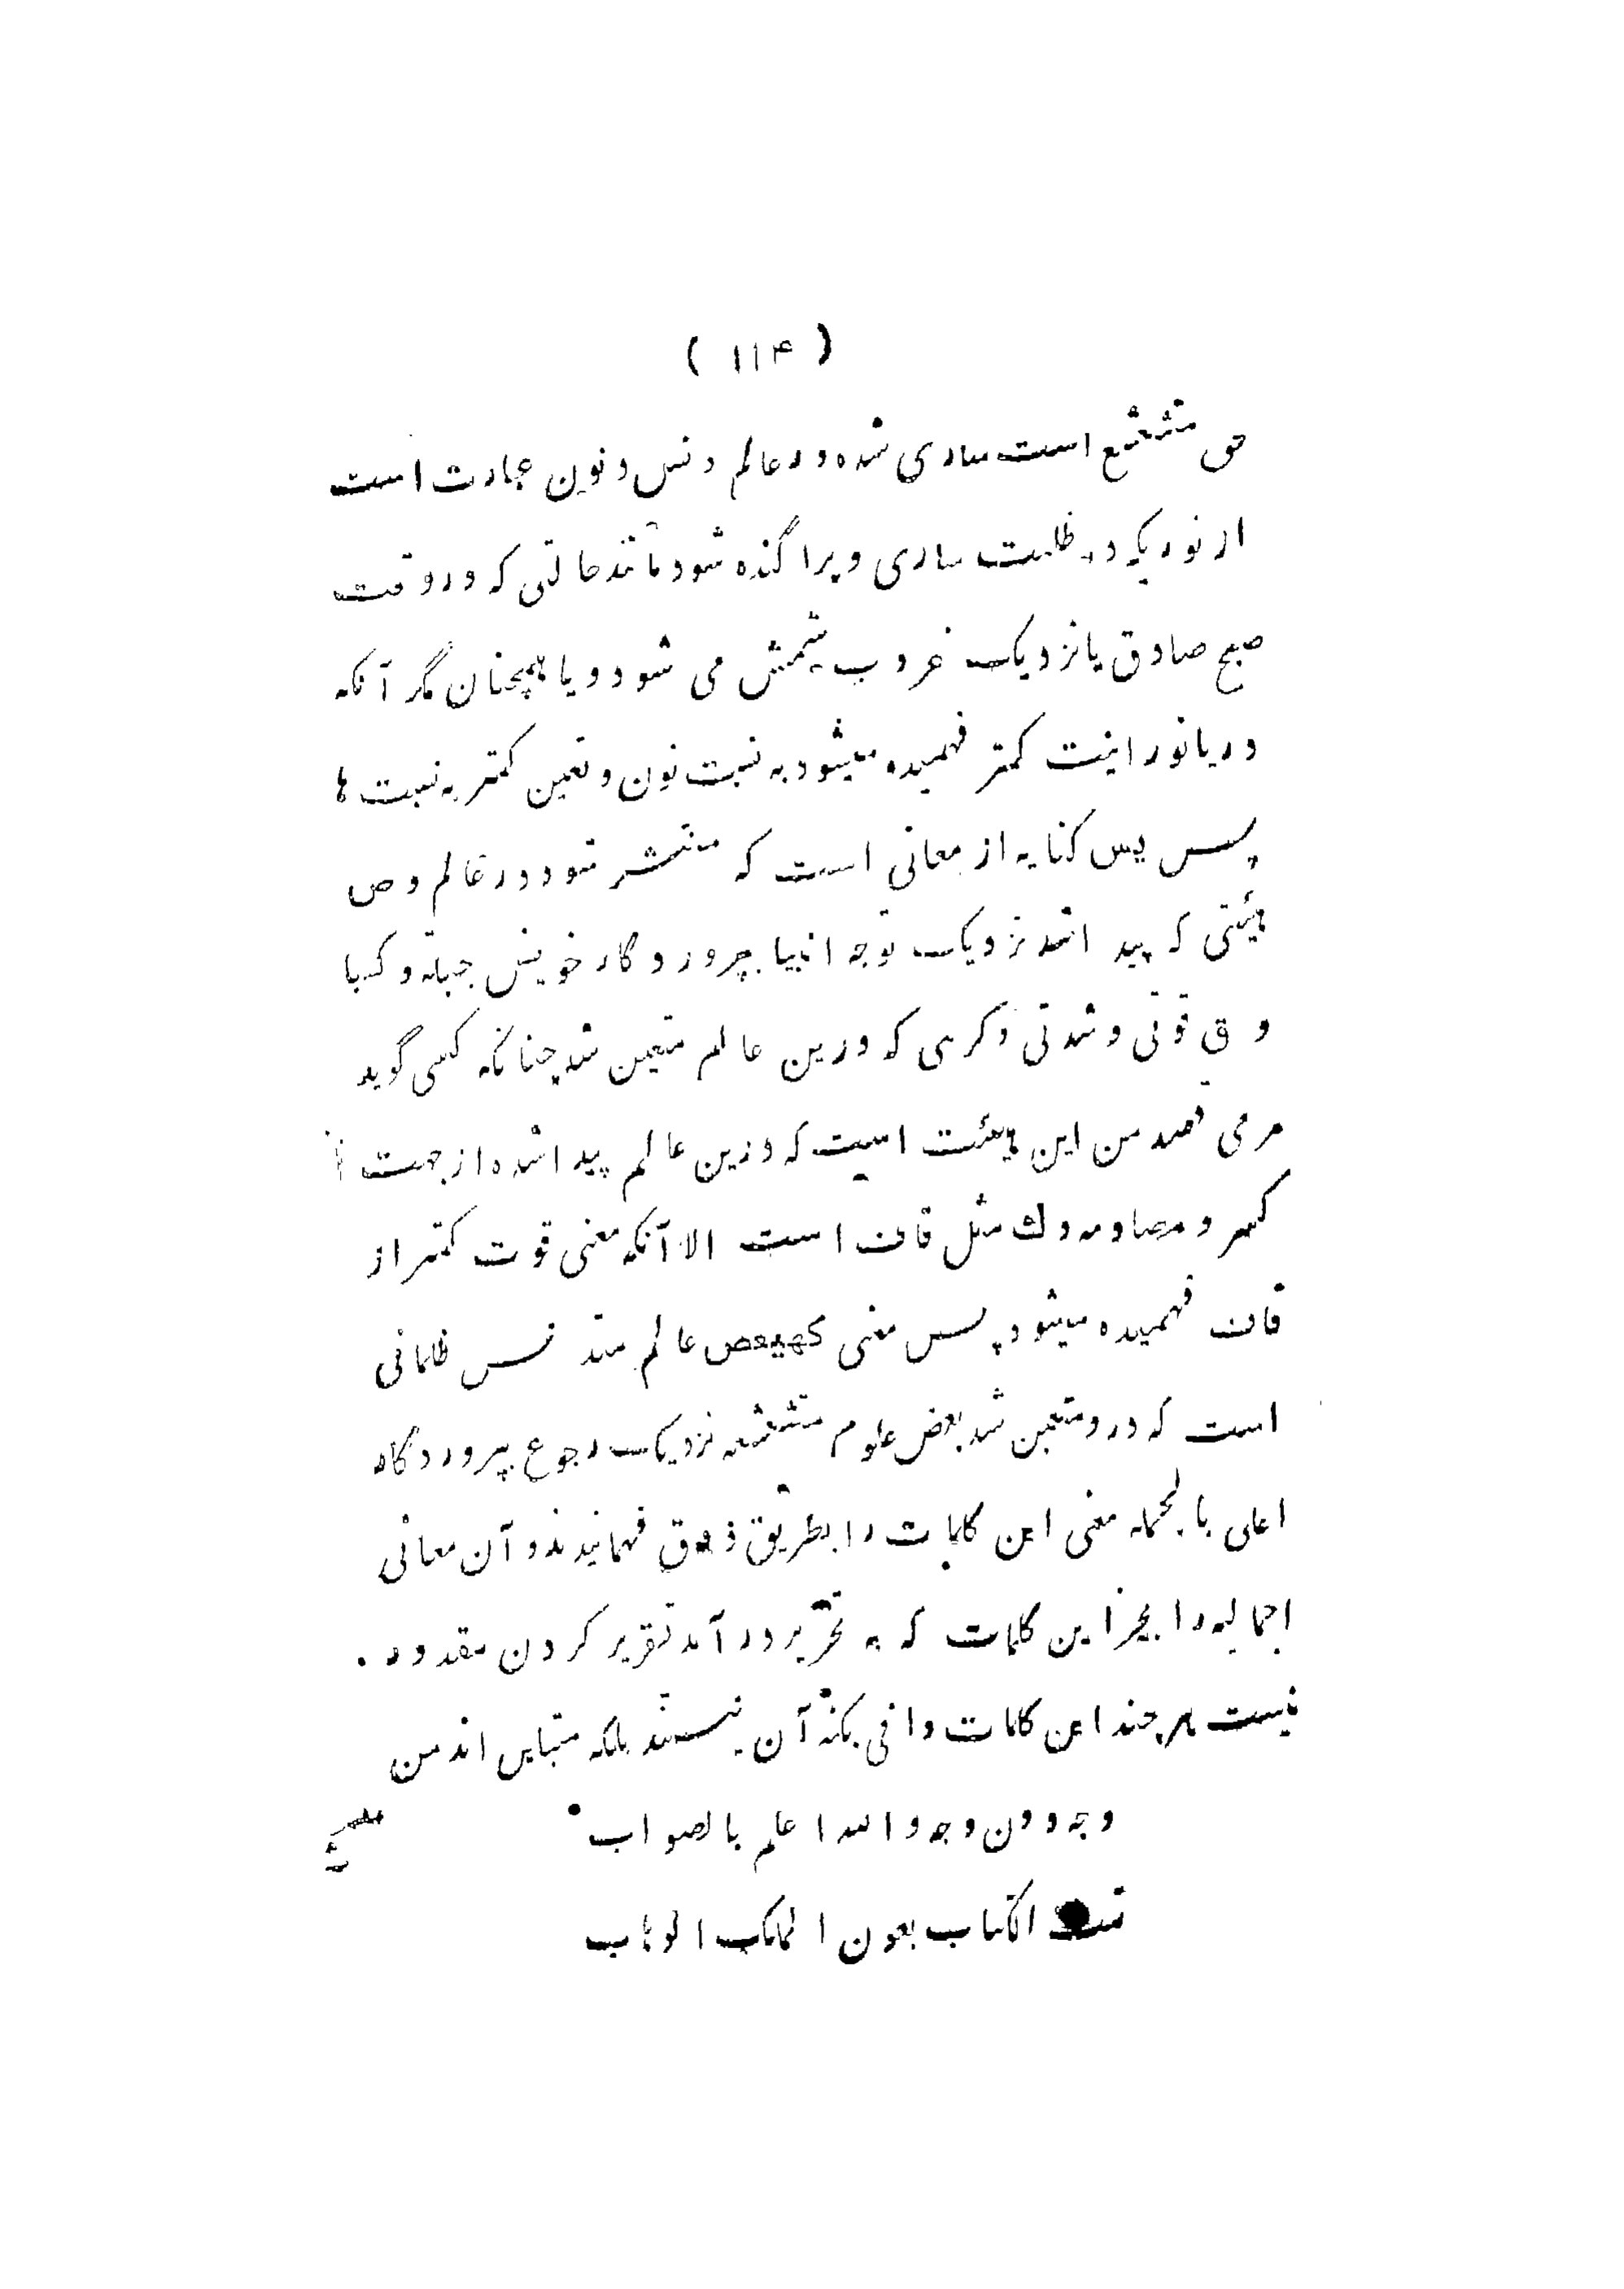 ( ۱۱۴ )
حق متشعشع است ساری شده در عالم دنس و نون عبارت است
از نوریکه در ظلمت ساری و پراگنده شود مانند حالتی که در وقت
صبح صادق یا نزدیک غروب شمس می شود و یا همچنان مگر آنکه
در یا نورانیت کمتر فهمیده میشود به نسبت نون و تعین کمتر به نسبت ها
پس یس کنایه از معانی است که منتشر شود در عالم و ص
هیئتی که پیدا شد نزدیک توجه انبیا بپروردگار خویش جبلة و کسبا
و ق قوتی و شدتی و کرهی که درین عالم متعین شد چنانکه کسی گوید
مرمی قصد من این هیئت است که درین عالم پیدا شده از جهت
کسر و مصادمه و ك مثل قاف است الا آنکه معنی قوت کمتر از
قاف فهمیده میشود پس معنی کهیعص عالم متدنس ظلمانی
است که درو متعین شد بعض علوم متشعشعه نزدیک رجوع بپروردگار
اعلی بالجمله معنی این کلمات را بطریق ذوق فهمانیدند و آن معانی
اجمالیه را بجز این کلمات که به تحریر در آمد تقریر کردن مقدور
نیست هر چند این کلمات وافی بکنه آن نیستند بلکه متباین اند من
وجه دون وجه و الله اعلم بالصواب
تمت الکتاب بعون الملک الوهاب